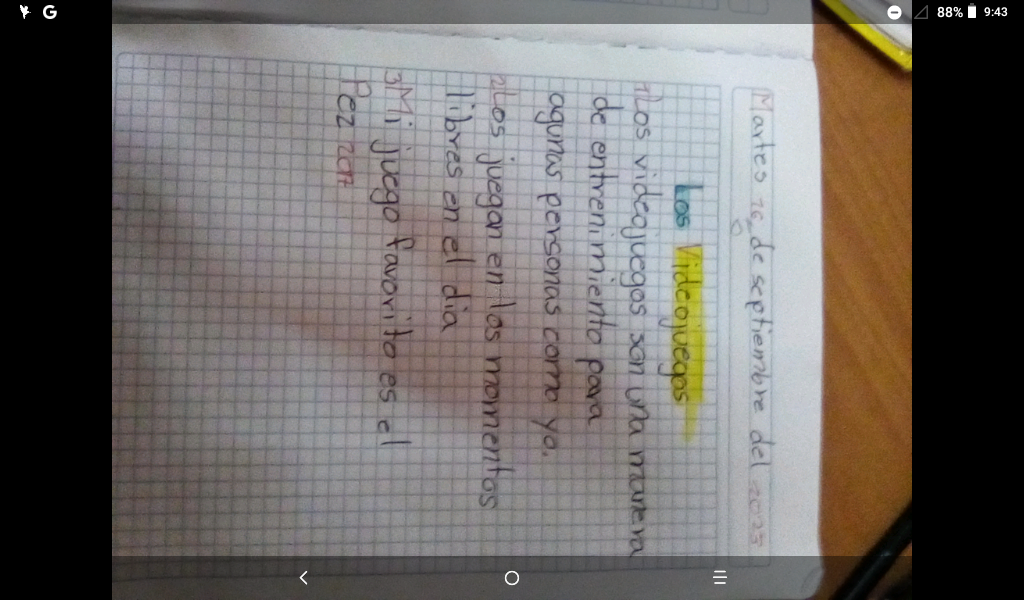 88% 9:43
Martes 16 de septiembre del 2025
Los Videojuegos
1Los videojuegos son una manera
de entrenimiento para
agunas personas como yo.
2Los juegan en los momentos
libres en el dia
3Mi juego favorito es el
Pez 2017